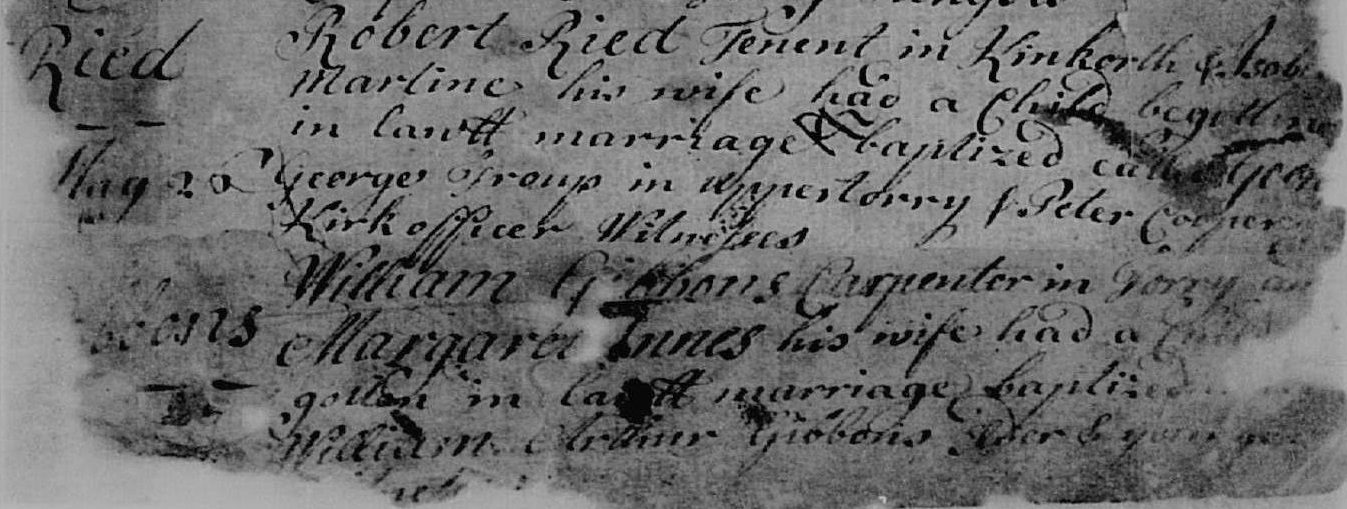 Ried
Robert Ried Tenent in Kinkorth & Isobe
Martine his wife had a Child begotting
in lawll marriage & baptized called Geor
May 22 George Troup in uppertorry & Peter Cooper
Kirk officer Witnesses
William Gibbons Carpenter in Torry an
bbons
Margaret Innes his wife had a
gotten in lawll marriage baptized
William Arthur Gibbons Elder & younger